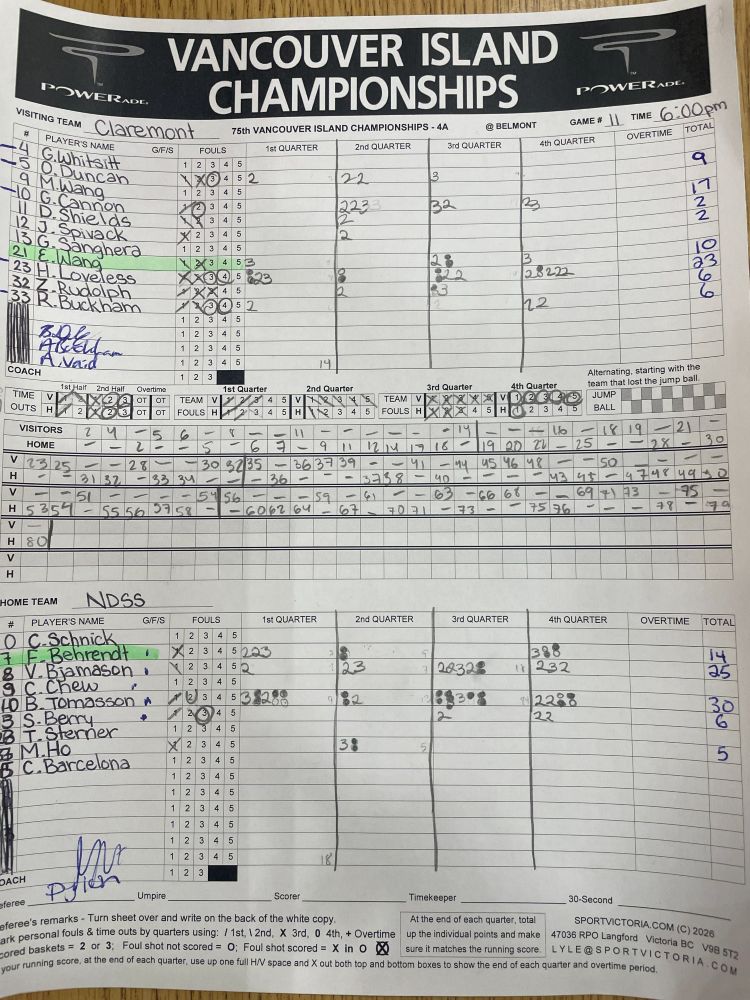 VANCOUVER ISLAND
CHAMPIONSHIPS
POWERADE
POWERADE
VISITING TEAM Claremont 75th VANCOUVER ISLAND CHAMPIONSHIPS - 4A @ BELMONT GAME # 11 TIME 6:00pm
# PLAYER'S NAME G/F/S FOULS 1st QUARTER 2nd QUARTER 3rd QUARTER 4th QUARTER OVERTIME TOTAL
4 G. Whitsitt
5 O. Duncan 1 2 3 4 5 2 22 3 9
9 M. Wang 1 2 3 4 5
10 G. Cannon 1 2 3 4 5 223 32 23 17
11 D. Shields 1 2 3 4 5 2 2
12 J. Spivack 1 2 3 4 5 2 2
13 G. Sanghera 1 2 3 4 5
21 E. Wang 1 2 3 4 5 3 3 10
23 H. Loveless 1 2 3 4 5 23
32 Z. Rudolph 1 2 3 4 5 2 6
33 R. Buckham 1 2 3 4 5 2 22 6
1 2 3 4 5
1 2 3 4 5
1 2 3 4 5
A. Vaid 1 2 3 4 5 14
COACH 1 2 3
Alternating, starting with the
team that lost the jump ball.
1st Half 2nd Half Overtime 1st Quarter 2nd Quarter 3rd Quarter 4th Quarter
TIME V OT OT TEAM V TEAM V JUMP
OUTS H OT OT FOULS H FOULS H BALL
VISITORS 2 4 - 5 6 - 8 - - 11 - - - - - - 14 - - - 16 - 18 19 - 21 -
HOME - - 2 - - 5 - 6 7 - 9 11 12 14 17 18 - 19 20 22 - 25 - - 28 - 30
V 23 25 - - 28 - - 30 32 35 - 36 37 39 - - 41 - 44 45 46 48 - - 50
H - - 31 32 - 33 34 - - - 36 - - - 37 38 - 40 - - - - 43 45 - 47 48 49 50
V - - 51 - - - - 54 56 - - - 59 - 61 - - 63 - 66 68 - - 69 71 73 - 75 -
H 53 54 - 55 56 57 58 - - 60 62 64 - 67 - 70 71 - 73 - - 75 76 - - - 78 - 79
V -
H 80
V
H
HOME TEAM NDSS
# PLAYER'S NAME G/F/S FOULS 1st QUARTER 2nd QUARTER 3rd QUARTER 4th QUARTER OVERTIME TOTAL
0 C. Schnick 1 2 3 4 5
7 F. Behrendt 1 2 3 4 5 223 14
8 V. Bjarnason 1 2 3 4 5 2 23 232 25
9 C. Chew 1 2 3 4 5
10 B. Tomasson 1 2 3 4 5 30
S. Berry 1 2 3 4 5 2 22 6
T. Sterner 1 2 3 4 5
M. Ho 1 2 3 4 5 5 5
C. Barcelona 1 2 3 4 5
1 2 3 4 5
1 2 3 4 5
1 2 3 4 5
1 2 3 4 5
1 2 3 4 5
1 2 3 4 5 18
OACH 1 2 3
eferee Umpire Scorer Timekeeper 30-Second
eferee's remarks - Turn sheet over and write on the back of the white copy.
ark personal fouls & time outs by quarters using: / 1st, \ 2nd, X 3rd, 0 4th, + Overtime
cored baskets = 2 or 3; Foul shot not scored = O; Foul shot scored = X in O
your running score, at the end of each quarter, use up one full H/V space and X out both top and bottom boxes to show the end of each quarter and overtime period.
At the end of each quarter, total
up the individual points and make
sure it matches the running score.
SPORTVICTORIA.COM (C) 2026
47036 RPO Langford Victoria BC V9B 5T2
LYLE@SPORTVICTORIA.COM